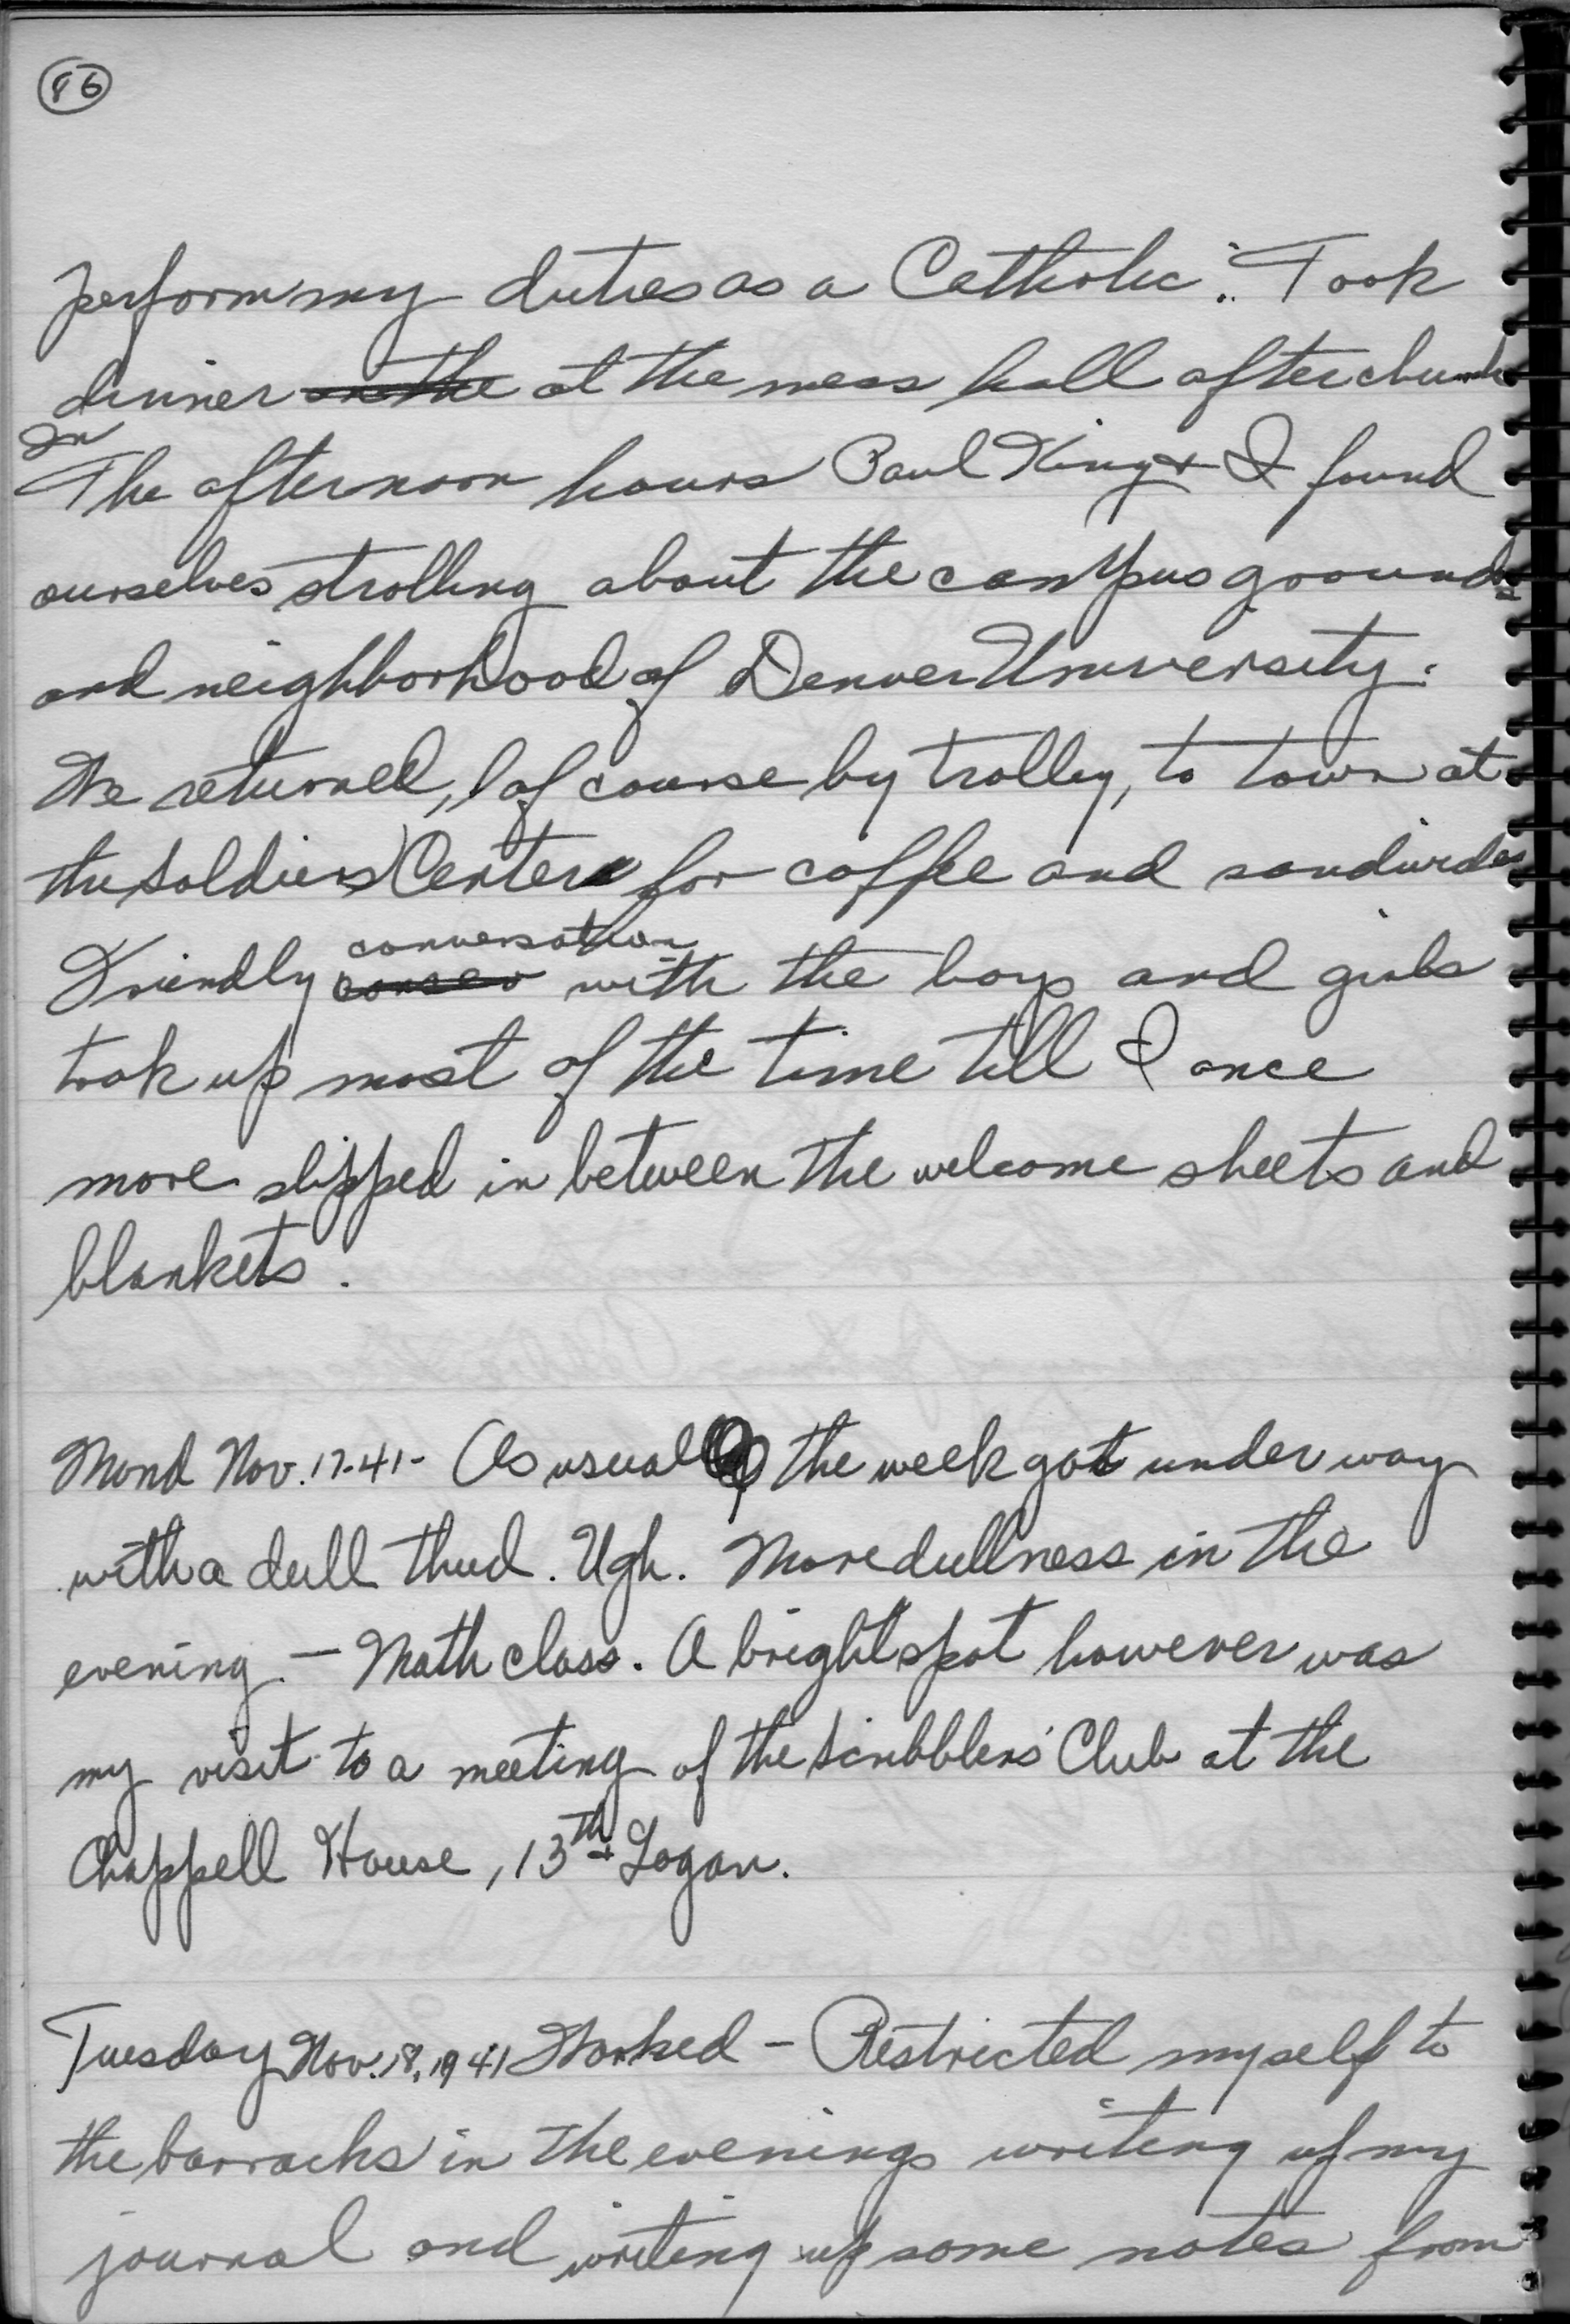 86
perform my duties as a Catholic. Took
dinner on the at the mess hall after church
In
The afternoon hours Paul King & I found
ourselves strolling about the campus grounds
and neighborhood of Denver University.
We returned, of course by trolley, to town at
the Soldiers Center for coffee and sandwiches
conversation
Friendly conser with the boys and girls
took up most of the time till I once
more slipped in between the welcome sheets and
blankets.
Mond Nov. 17-41- As usual the week got under way
with a dull thud. Ugh. More dullness in the
evening - Math class. A bright spot however was
my visit to a meeting of the Scribblers' Club at the
Chappell House, 13th & Logan.
Tuesday Nov. 18, 1941 Worked - Restricted myself to
the barracks in the evenings writing up my
journal and writing up some notes from